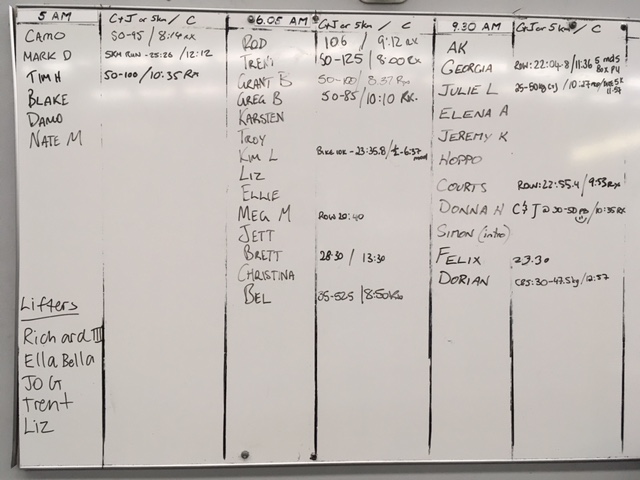 5 AM C+J or 5km / C
CAMO 50-95 / 8:14 RX
MARK D 5KM RUN - 25:26 / 12:12
TIM H 50-100 / 10:35 Rx
BLAKE
DAMO
NATE M
Lifters
Richard III
Ella Bella
JO G
Trent
Liz
6.05 AM C+J or 5km / C
ROD 106 / 9:12 RX
TRENT 50-125 / 8:00 RX
GRANT B 50-100 / 8:37 Rx
GREG B 50-85 / 10:10 RX.
KARSTEN
TROY
KIM L BIKE 10K - 23:35.8 /
LIZ
ELLIE
MEG M ROW 20:40
JETT
BRETT 28:30 / 13:30
CHRISTINA
BEL 35-52.5 / 8:50
9.30 AM C+J or 5km / C
AK
GEORGIA ROW: 22:04.8 / 11:36 5 rnds Box PU
JULIE L 25-50kg C+J / 11:57
ELENA A
JEREMY K
HOPPO
COURTS ROW: 22:55.4 / 9:53 RX
DONNA H C & J @ 30-50 PB / 10:35 RX
SIMON (intro)
FELIX 23.30
DORIAN C&S: 30-47.5kg / 12:57